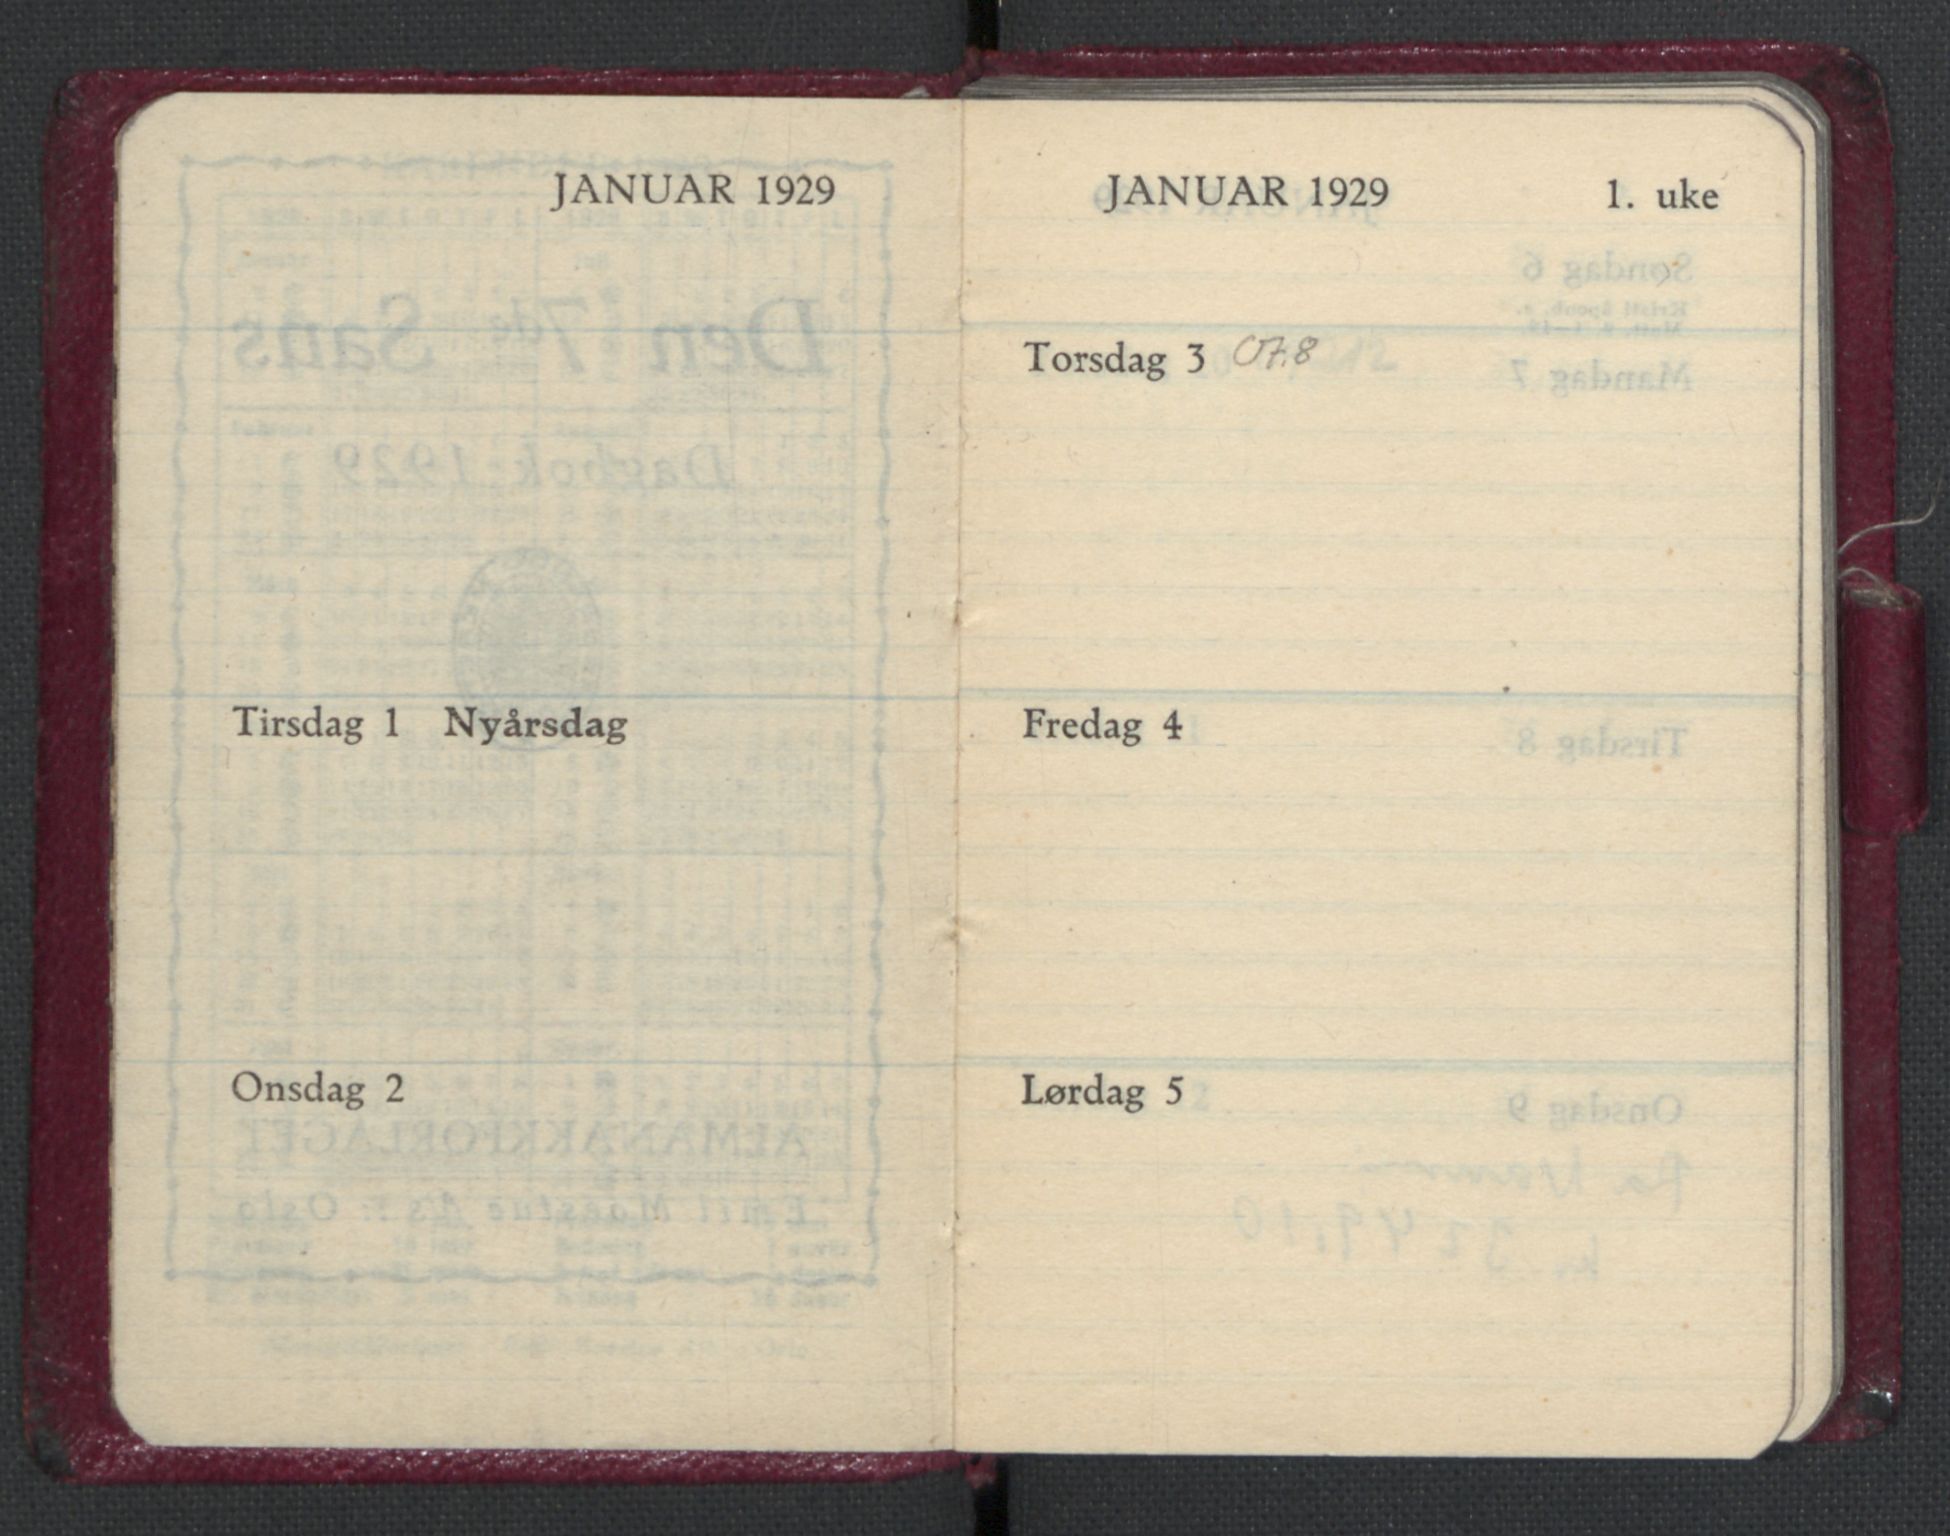 JANUAR 1929
Tirsdag 1 Nyårsdag
Onsdag 2
JANUAR 1929 1. uke
Torsdag 3
Fredag 4
Lørdag 5